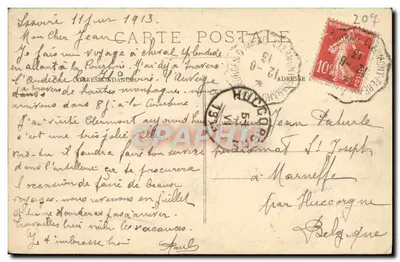 209
Issoire 11 juin 1913.
CARTE POSTALE
Mon cher Jean
Je fais un voyage à cheval splendide
en allant à la Courtine. J'ai déjà traversé
l'Ardèche la Hte Loire, l'Auvergne
CORRESPONDANCE
ADRESSE
à travers de hautes montagnes, nous
arrivons dans 8 j. à la Courtine.
J'ai visité Clermont aujourd'hui
c'est une très jolie
vois-tu il faudra faire ton service
dans l'artillerie ça te procurera
l'occasion de faire de beaux
voyages. nous revenons en juillet
pas à arriver
travailles bien voilà les vacances.
Je t'embrasse bien
Paul
10
HUCCORGNE
Jean
Pensionnat St Joseph
à Marneffe
par Huccorgne
Belgique